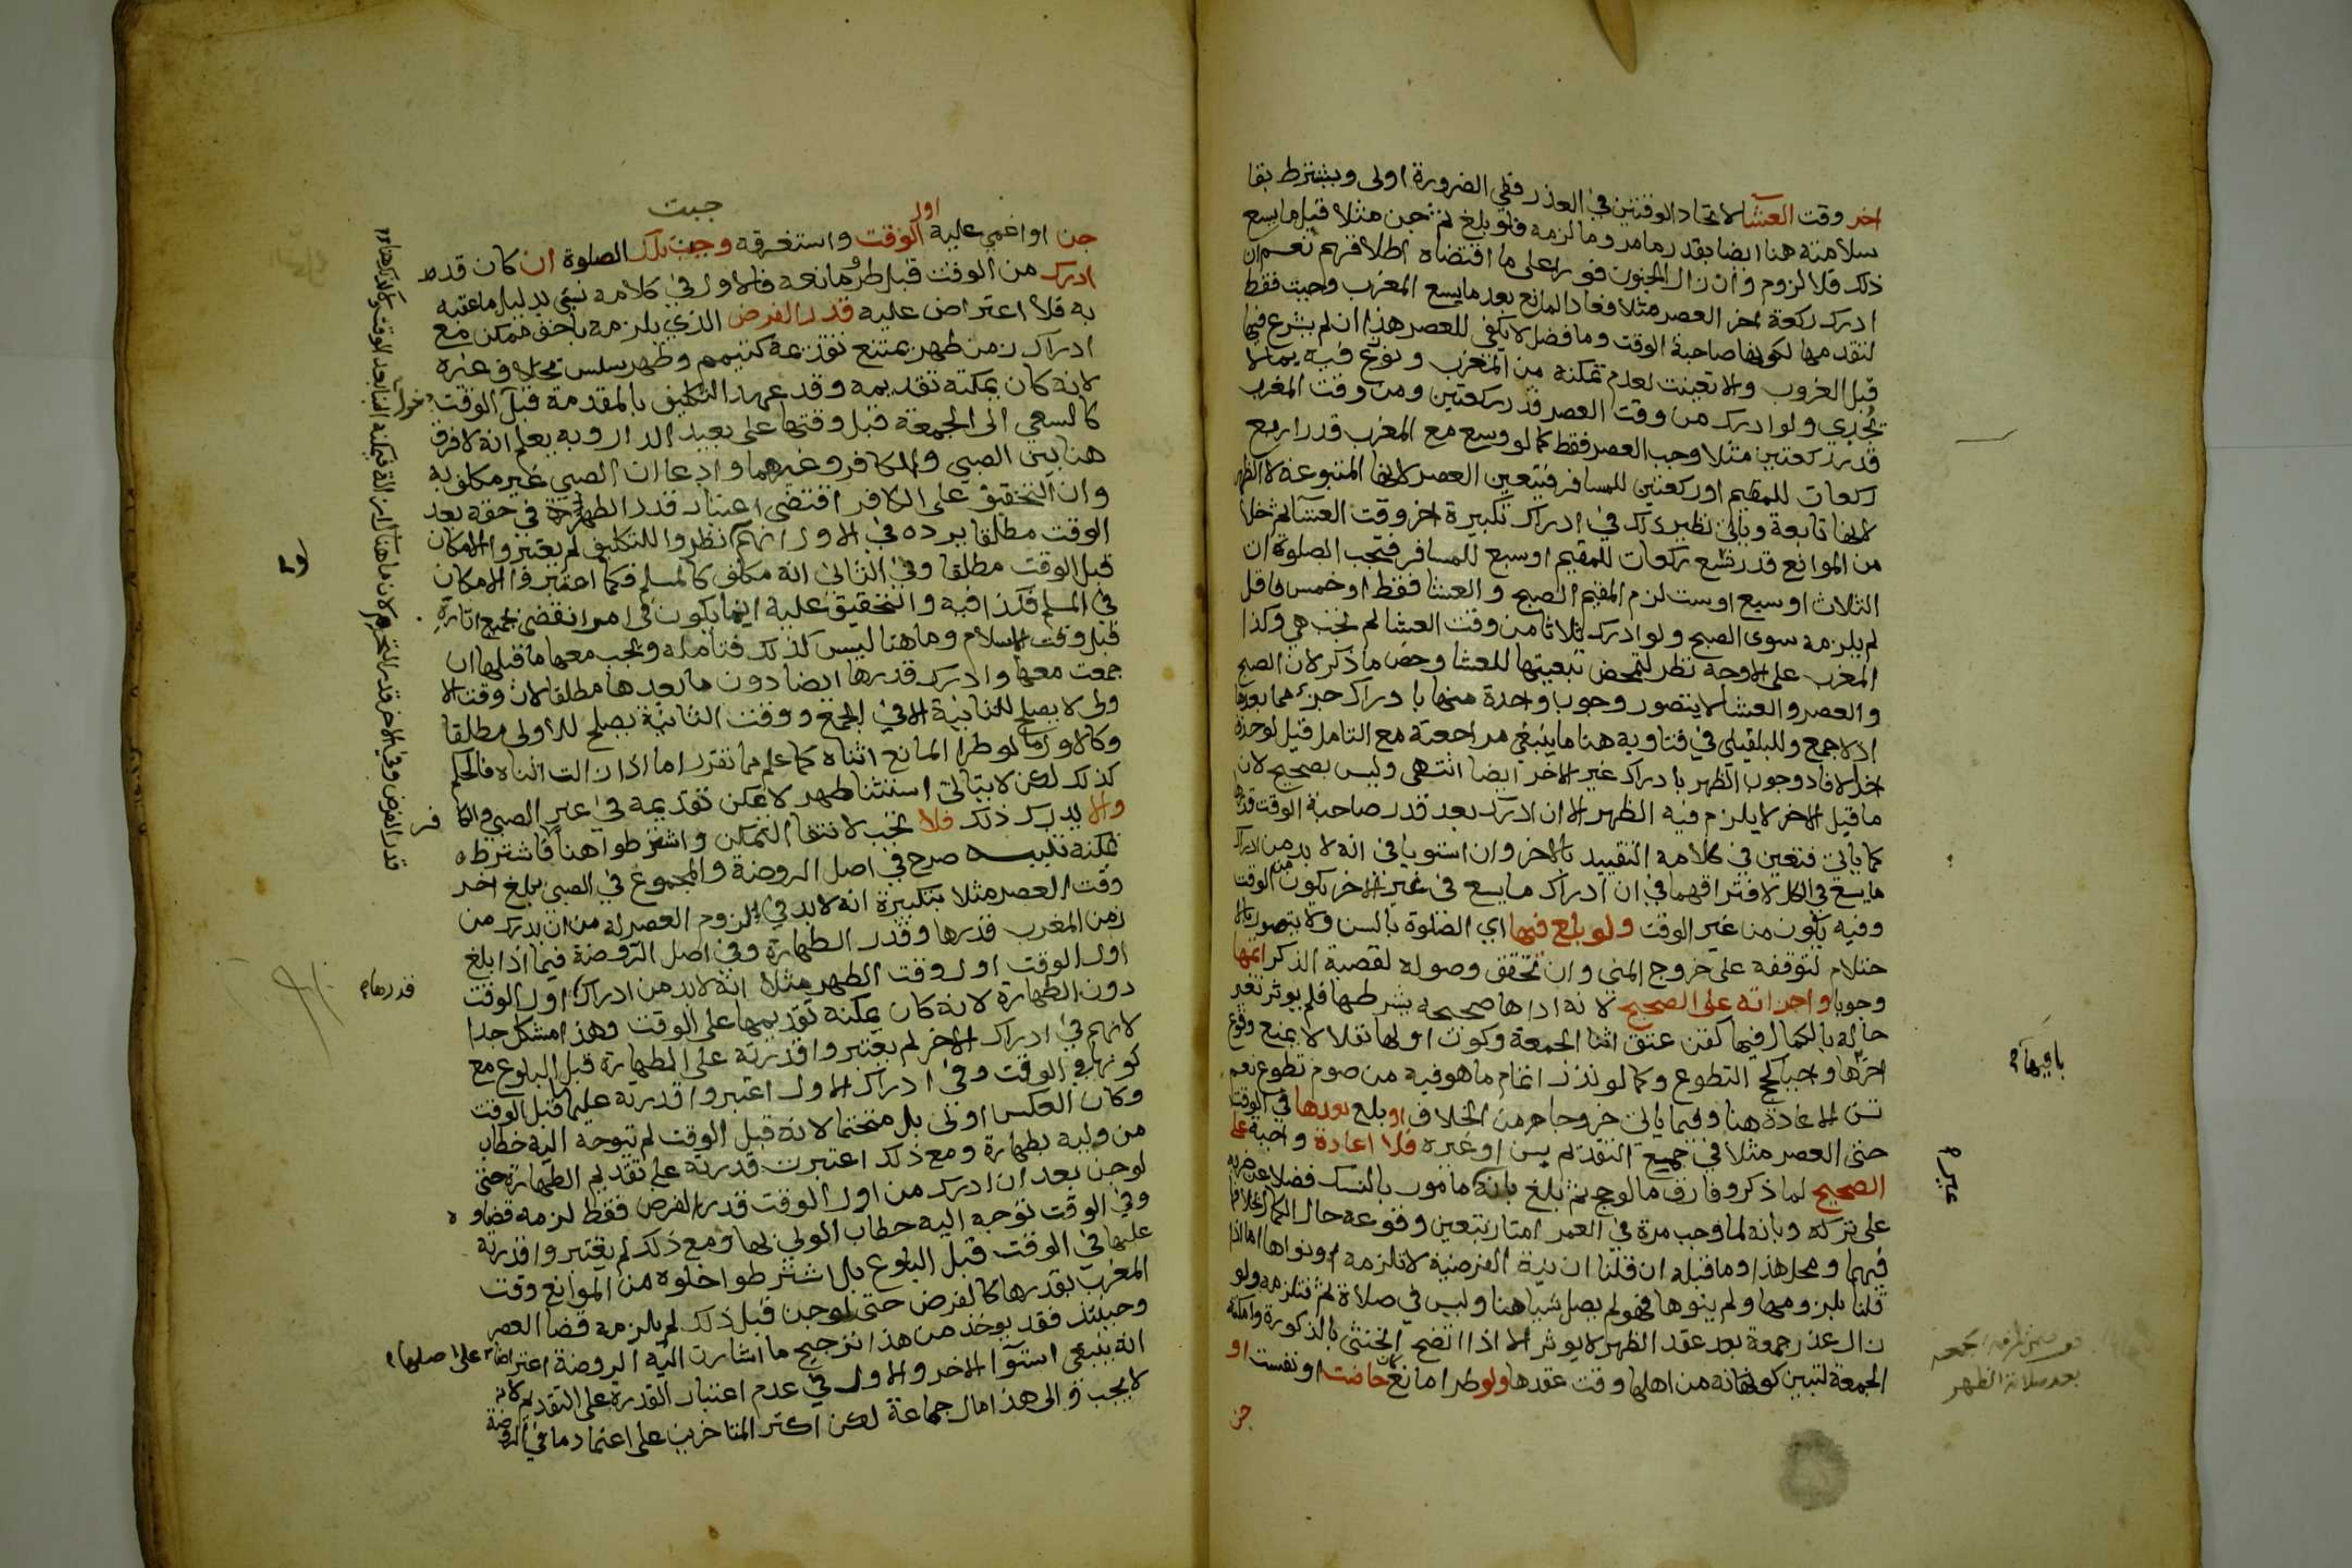 اخر وقت العشا لاتحاد الوقتين في العذر ففي الضرورة اولى ويشترط بقا
سلامته هنا ايضا بقدر ما مر وما لزمه فلو بلغ ثم جن مثلا قبل ما يسع
ذلك فلا لزوم وان زال الجنون فورا على ما اقتضاه اطلاقهم نعم ان
ادرك ركعة اخر العصر مثلا فعاد المانع بعد ما يسع المغرب وجبت فقط
لتقدمها لكونها صاحبة الوقت وما فضل لا يكفي للعصر هذا ان لم يشرع فيها
قبل الغروب والا تعينت لعدم تمكنه من المغرب ونوزع فيه بما لا
يجدي ولو ادرك من وقت العصر قدر ركعتين ومن وقت المغرب
قدر ركعتين مثلا وجب العصر فقط كما لو وسع مع المغرب قدر اربع
ركعات للمقيم او ركعتين للمسافر فتتعين العصر لانها المتبوعة لا الظهر
لانها تابعة وياتي نظير ذلك في ادراك تكبيرة اخر وقت العشا ثم خلا
من الموانع قدر تسع ركعات للمقيم او سبع للمسافر فتجب الصلوة ان
الثلاث او سبع او ست لزم المقيم الصبح والعشا فقط او خمس فاقل
لم يلزمه سوى الصبح ولو ادرك ثلاثا من وقت العشا لم تجب هي وكذا
المغرب على الاوجه نظر لتمحض تبعيتها للعشا وخص ما ذكر لان الصبح
والعصر والعشا لا يتصور وجوب واحدة منها با دراك جزء مما بعدها
اذ لا جمع وللبلقيني في فتاويه هنا ما ينبغي مراجعته مع التامل قيل لو حذف
اخر لافاد وجوب الظهر با دراك غير الاخر ايضا انتهى وليس بصحيح لان
ما قبل الاخر لا يلزم فيه الظهر الا ان ادرك بعد قدر صاحبة الوقت قدرها
كما ياتي فتعين في كلامه التقييد بالاخر وان استويا في انه لا بد من ادراك
ما يسع في الكل لافتراقهما في ان ادراك ما يسع في غير الاخر يكون من الوقت
وفيه يكون من غير الوقت ولو بلغ فيها اي الصلوة بالسن ولا يتصور بالا
حتلام لتوقفه على خروج المني وان تحقق وصوله لقصبة الذكر اتمها
وجوبا واجزاته على الصحيح لانه اداها صحيحه بشرطها فلم يوثر تغير
حاله بالكمال فيها كقن عتق اثنا الجمعة وكون اولها نفلا لا يمنع وقوع
اخرها واجبا كحج التطوع وكما لو نذر اتمام ما هو فيه من صوم تطوع نعم
تسن الاعادة هنا وفيما ياتي خروجا من الخلاف او بلغ بعدها في الوقت
حتى العصر مثلا في جميع التقديم بسن او غيره فلا اعادة واجبة على
الصحيح لما ذكر وفارق ما لو حج ثم بلغ بانه مامور بالنسك فضلا عن ضربه
على تركه وبانه لما وجب مرة في العمر امتاز بتعين وقوعه حال الكمال بخلافها
فيهما ومحل هذا وما قبله ان قلنا ان نية الفرضية لا تلزمه او نواها اما اذا
قلنا بلزومها ولم ينوها فهو لم يصل شيا هنا وليس في صلاة ثم فتلزمه ولو
زال عذر جمعة بعد عقد الظهر لا يوثر الا اذا اتضح الخنثى بالذكورة وامكنه
الجمعة لتبين كونه كان من اهلها وقت عقدها ولو طرا مانع كان حاضت او نفست او
جن
باقيها
غير
بعد صلاة الظهر
جبت
جن او اغمي عليه اول الوقت واستغرقه وجبت تلك الصلوة ان كان قد
ادرك من الوقت قبل طرو مانعه فالاول في كلامه نسبي بدليل ما عقبه
به فلا اعتراض عليه قدر الفرض الذي يلزمه باخف ممكن مع
ادراك زمن طهر يمتنع تقديمه كتيمم وطهر سلس بخلاف غيره
لانه كان يمكنه تقديمه وقد عهد التكليف بالمقدمة قبل الوقت
كالسعي الى الجمعة قبل وقتها على بعيد الدار وبه يعلم انه لا فرق
هنا بين الصبي والكافر وغيرهما وادعا ان الصبي غير مكلف به
وان التخفيف على الكافر اقتضى اعتبار قدر الطهارة في حقه بعد
الوقت مطلقا يرده في الاول انهم نظروا للتكليف لم يعتبروا الامكان
قبل الوقت مطلقا وفي الثاني انه مكلف كالمسلم فكما اعتبروا الامكان
في المسلم فكذا فيه والتخفيف عليه انما يكون في امر انقضى بجميع اثاره
قبل وقت الاسلام وما هنا ليس كذلك فتامله وتجب معها ما قبلها ان
جمعت معها وادرك قدرها ايضا دون ما بعدها مطلقا لان وقت الا
ولى لا يصلح للثانية الا في الجمع ووقت الثانية يصلح للاولى مطلقا
وكالاول ما لو طرا المانع اثناه كما علم مما تقرر اما اذا زالت اثناه فالحكم
كذلك لكن لا يتاتى استثنا طهر لا يمكن تقديمه في غير الصبي والكافر
والا يدرك ذلك فلا تجب لانتفا التمكن واشترطوا هنا فاشترطه
تمكنه تنبيه صرح في اصل الروضة والمجموع في الصبي يبلغ اخر
وقت العصر مثلا بتكبيرة انه لا بد في لزوم العصر له من ان يدرك من
زمن المغرب قدرها وقدر الطهارة وفي اصل الروضة فيما اذا بلغ
اول الوقت اول وقت الظهر مثلا انه لا بد من ادراك اول الوقت
قدرها
دون الطهارة لانه كان يمكنه تقديمها على الوقت وهذا مشكل جدا
لانهم في ادراك الاخر لم يعتبروا قدرته على الطهارة قبل البلوغ مع
كونها في الوقت وفي ادراك الاول اعتبروا قدرته عليها قبل الوقت
وكان العكس اولى بل متحتما لانه قبل الوقت لم تتوجه اليه خطاب
من وليه بطهارة ومع ذلك اعتبرت قدرته على تقديم الطهارة حتى
لو جن بعد ان ادرك من اول الوقت قدر الفرض فقط لزمه قضاوه
وفي الوقت توجه اليه خطاب الولي بها ومع ذلك لم يعتبروا قدرته
عليها في الوقت قبل البلوغ بل اشترطوا خلوه من الموانع وقت
المغرب بقدرها كالفرض حتى لو جن قبل ذلك لم يلزمه قضا العصر
وحينئذ فقد يوخذ من هذا ترجيح ما اشارت اليه الروضة اعتراضا على اصلها
انه ينبغي استوا الاخر والاول في عدم اعتبار القدرة على التقديم لانه
لا يجب والى هذا مال جماعة لكن اكثر المتاخرين على اعتماد ما في الروضة